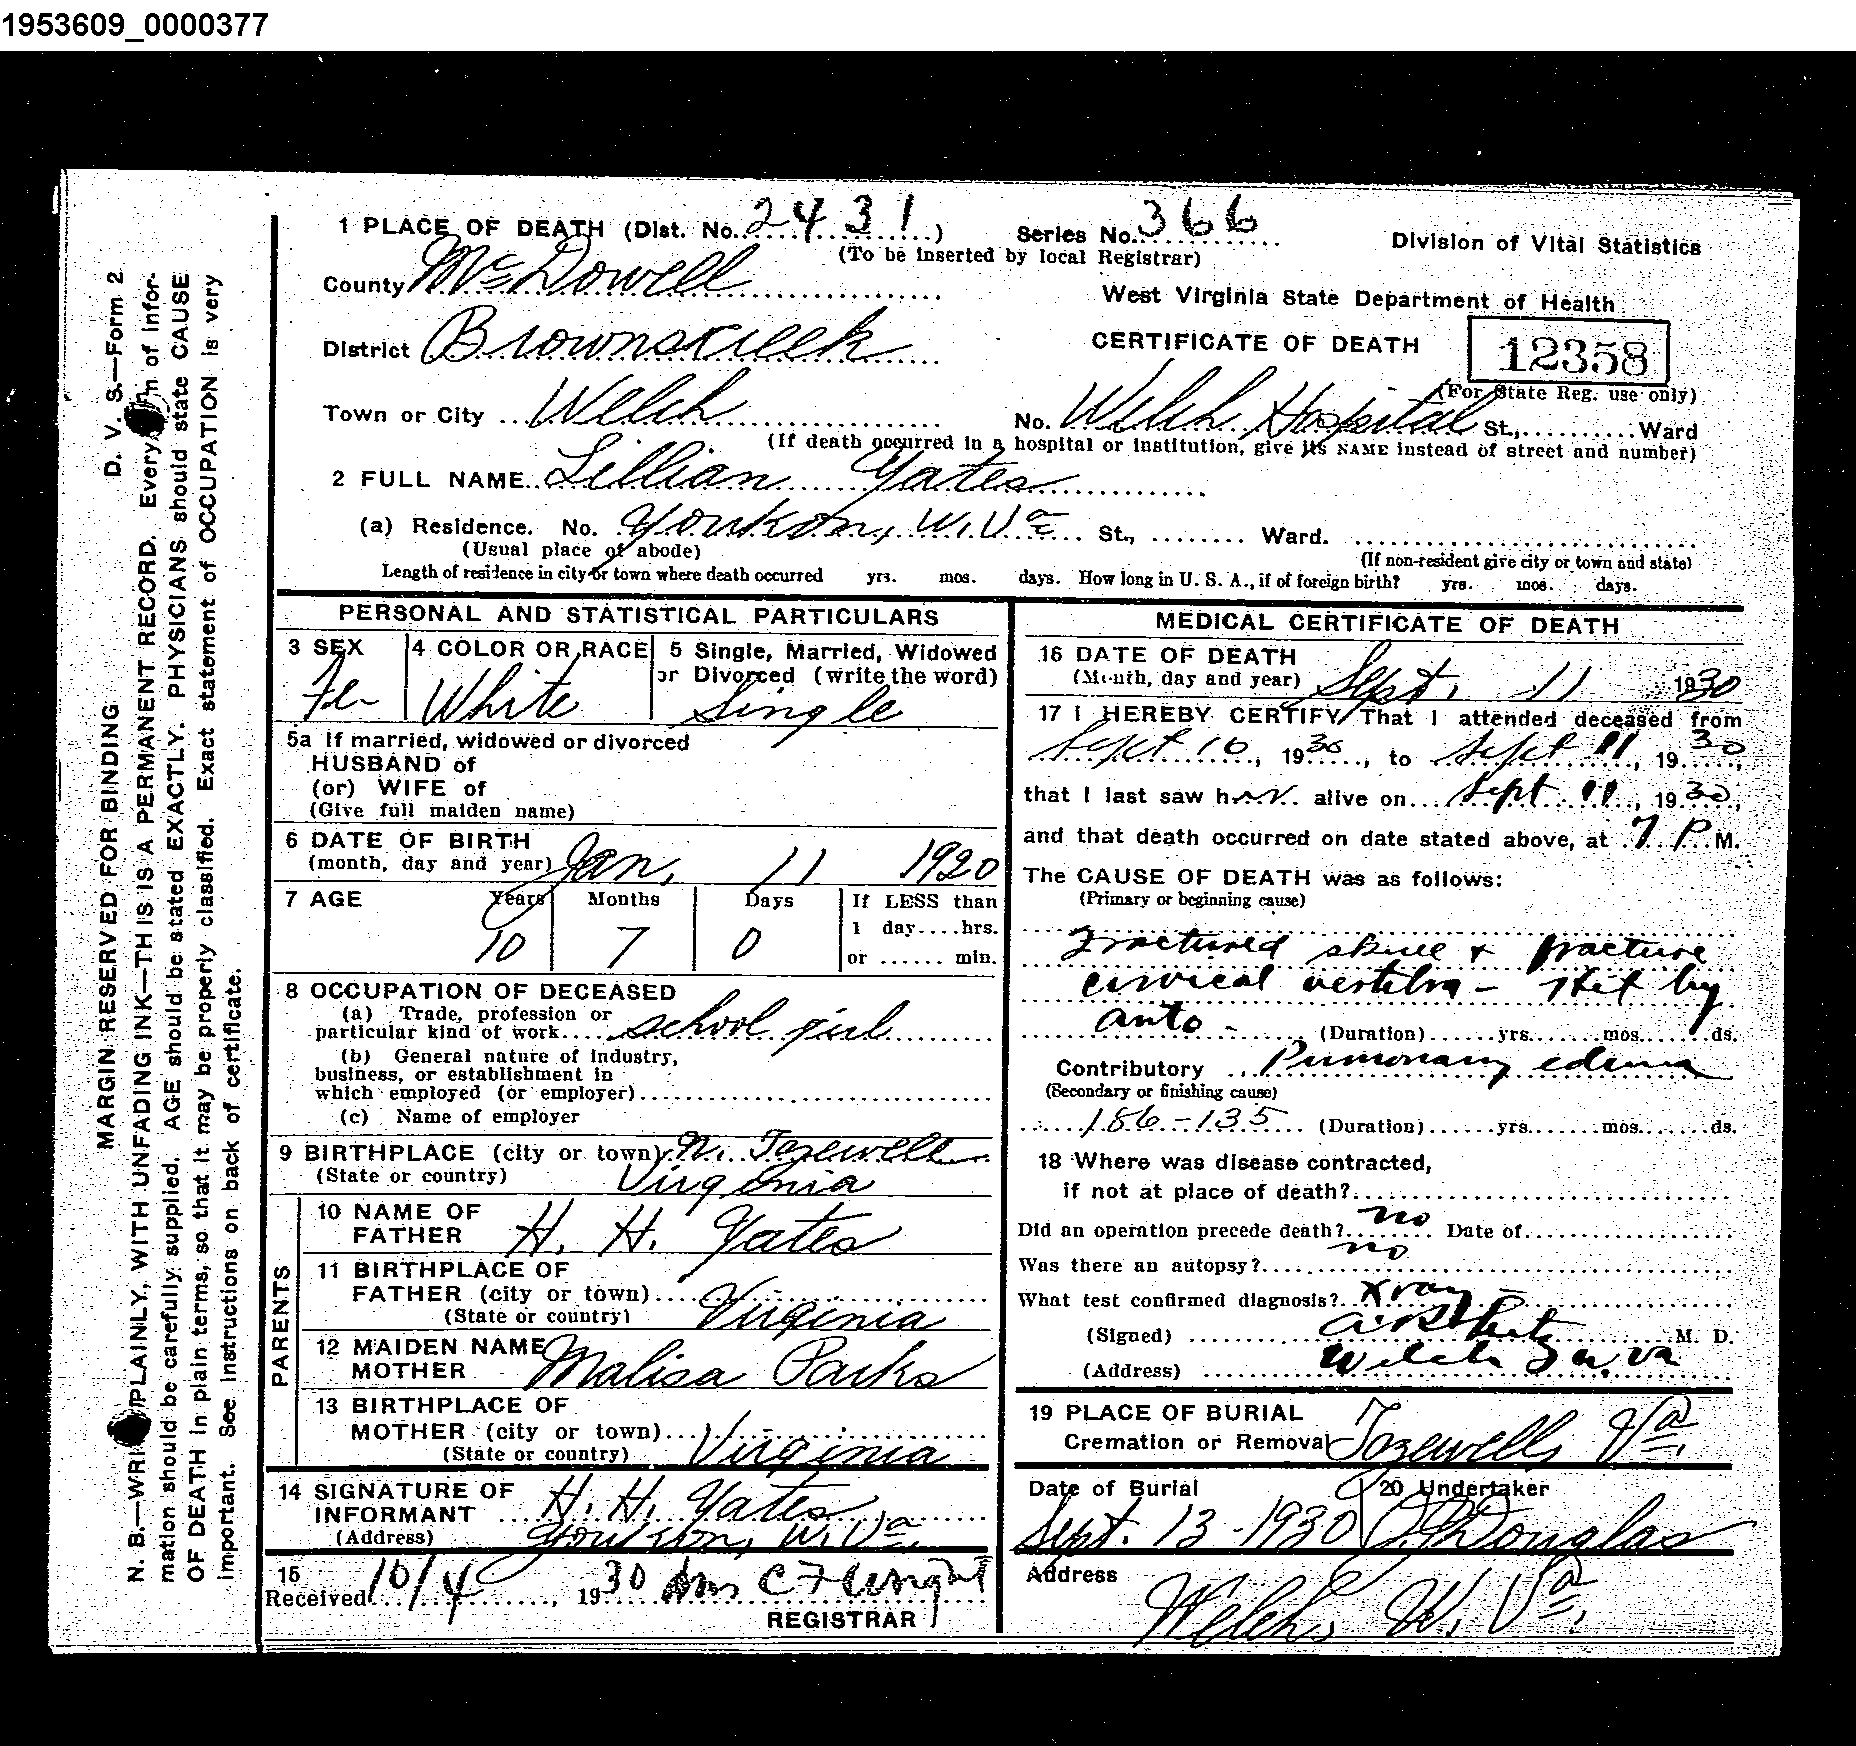 1953609_0000377
1 PLACE OF DEATH (Dist. No. 2431) Series No. 366
(To be inserted by local Registrar)
Division of Vital Statistics
County McDowell
West Virginia State Department of Health
District Brownscreek
CERTIFICATE OF DEATH 12358
(For State Reg. use only)
Town or City Welch No. Welch Hospital St., Ward
(If death occurred in a hospital or institution, give its NAME instead of street and number)
2 FULL NAME Lillian Yates
(a) Residence. No. Youkon, W. Va St., Ward.
(Usual place of abode) (If non-resident give city or town and state)
Length of residence in city or town where death occurred yrs. mos. days. How long in U. S. A., if of foreign birth? yrs. mos. days.
PERSONAL AND STATISTICAL PARTICULARS
3 SEX 4 COLOR OR RACE 5 Single, Married, Widowed
or Divorced (write the word)
Fe- White Single
5a If married, widowed or divorced
HUSBAND of
(or) WIFE of
(Give full maiden name)
6 DATE OF BIRTH
(month, day and year) Jan, 11 1920
7 AGE Years Months Days If LESS than
1 day....hrs.
10 7 0 or ...... min.
8 OCCUPATION OF DECEASED
(a) Trade, profession or
particular kind of work school girl
(b) General nature of industry,
business, or establishment in
which employed (or employer)
(c) Name of employer
9 BIRTHPLACE (city or town) N. Tazewell
(State or country) Virginia
PARENTS
10 NAME OF
FATHER H. H. Yates
11 BIRTHPLACE OF
FATHER (city or town)
(State or country) Virginia
12 MAIDEN NAME
MOTHER Malisa Parks
13 BIRTHPLACE OF
MOTHER (city or town)
(State or country) Virginia
14 SIGNATURE OF
INFORMANT H. H. Yates
(Address) Youkon, W. Va
15
Received 10/4, 1930 C F Wright
REGISTRAR
MEDICAL CERTIFICATE OF DEATH
16 DATE OF DEATH
(Month, day and year) Sept. 11 1930
17 I HEREBY CERTIFY That I attended deceased from
Sept 10, 1930, to Sept 11, 1930,
that I last saw her alive on Sept 11, 1930,
and that death occurred on date stated above, at 7 P. M.
The CAUSE OF DEATH was as follows:
(Primary or beginning cause)
Fractured skull + fracture
cervical vertebra - Hit by
auto - (Duration) yrs. mos. ds.
Contributory Pumonary edema
(Secondary or finishing cause)
186-135 (Duration) yrs. mos. ds.
18 Where was disease contracted,
if not at place of death?
Did an operation precede death? no Date of
Was there an autopsy? no
What test confirmed diagnosis? Xray
(Signed) M. D.
(Address) Welch W. Va
19 PLACE OF BURIAL
Cremation or Removal Tazewell, Va.
Date of Burial 20 Undertaker
Sept. 13 - 1930 Douglas
Address
Welch, W. Va.
D. V. S.—Form 2
MARGIN RESERVED FOR BINDING
N. B.—WRITE PLAINLY, WITH UNFADING INK—THIS IS A PERMANENT RECORD. Every item of infor-
mation should be carefully supplied. AGE should be stated EXACTLY. PHYSICIANS should state CAUSE
OF DEATH in plain terms, so that it may be properly classified. Exact statement of OCCUPATION is very
important. See instructions on back of certificate.